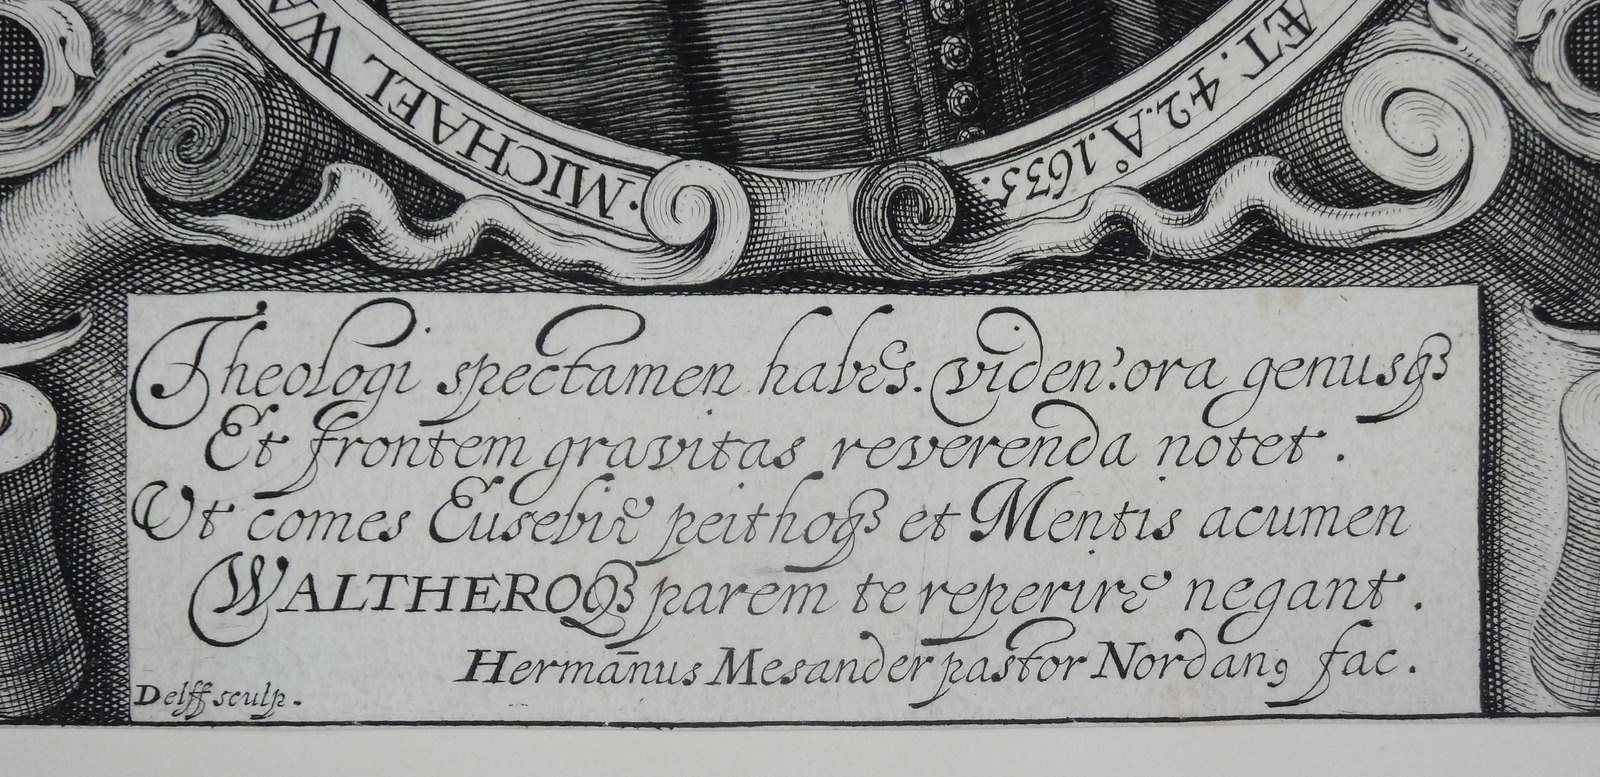 · MICHAEL WA
ÆT. 42. A°. 1635.
Theologi spectamen habes. viden? ora genusq3
Et frontem gravitas reverenda notet.
Ut comes Eusebiæ peithoq3 et Mentis acumen
WALTHEROQ3 parem te reperire negant.
Hermānus Mesander pastor Nordan9 fac.
Delff sculp.